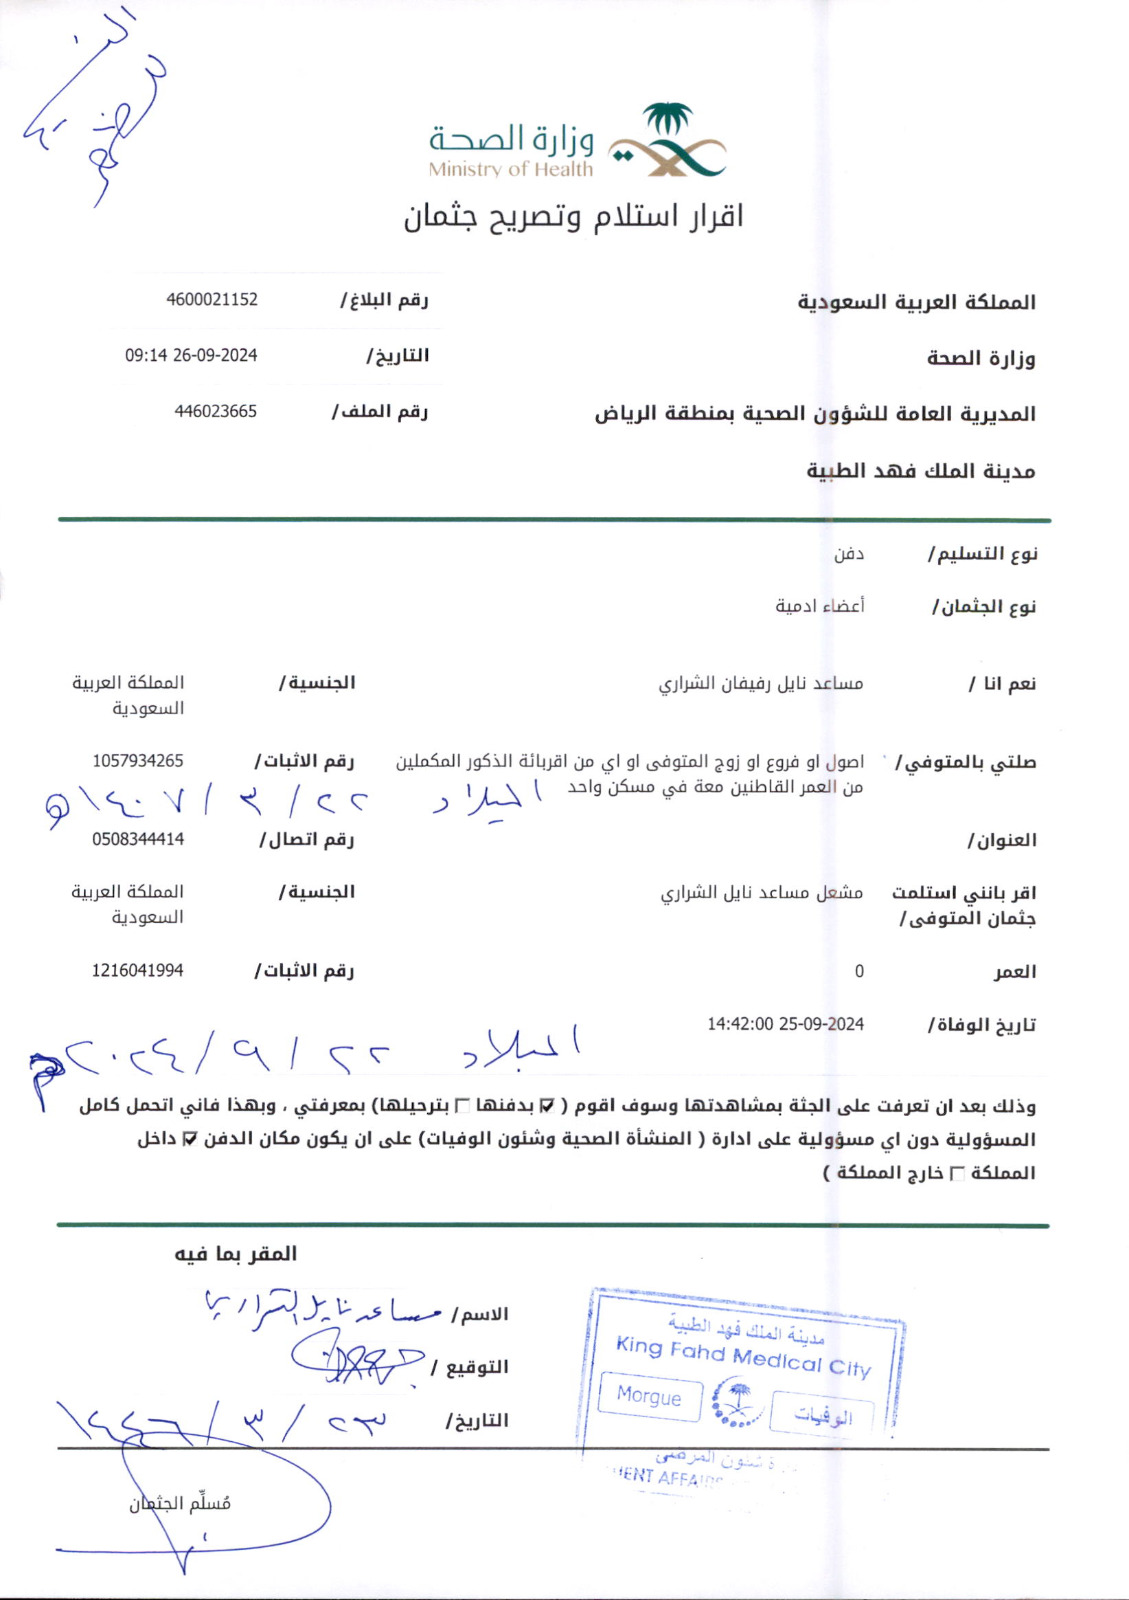 وزارة الصحة
Ministry of Health
اقرار استلام وتصريح جثمان
المملكة العربية السعودية
رقم البلاغ/ 4600021152
وزارة الصحة
التاريخ/ 26-09-2024 09:14
المديرية العامة للشؤون الصحية بمنطقة الرياض
رقم الملف/ 446023665
مدينة الملك فهد الطبية
نوع التسليم/ دفن
نوع الجثمان/ أعضاء ادمية
نعم انا / مساعد نايل رفيفان الشراري
الجنسية/ المملكة العربية
السعودية
صلتي بالمتوفي/ اصول او فروع او زوج المتوفى او اي من اقربائة الذكور المكملين
من العمر القاطنين معة في مسكن واحد
رقم الاثبات/ 1057934265
الميلاد ٢٢ / ٣ / ١٤٠٧ هـ
العنوان/
رقم اتصال/ 0508344414
اقر بانني استلمت
جثمان المتوفى/
مشعل مساعد نايل الشراري
الجنسية/ المملكة العربية
السعودية
العمر 0
رقم الاثبات/ 1216041994
تاريخ الوفاة/ 25-09-2024 14:42:00
الميلاد ٢٢ / ٩ / ٢٠٢٤ م
وذلك بعد ان تعرفت على الجثة بمشاهدتها وسوف اقوم ( ☑ بدفنها ☐ بترحيلها) بمعرفتي ، وبهذا فاني اتحمل كامل
المسؤولية دون اي مسؤولية على ادارة ( المنشأة الصحية وشئون الوفيات) على ان يكون مكان الدفن ☑ داخل
المملكة ☐ خارج المملكة )
المقر بما فيه
الاسم/ مساعد نايل الشراري
التوقيع /
التاريخ/ ٢٣ / ٣ / ١٤٤٦
مُسلِّم الجثمان
مدينة الملك فهد الطبية
King Fahd Medical City
Morgue
الوفيات
شئون المرضى